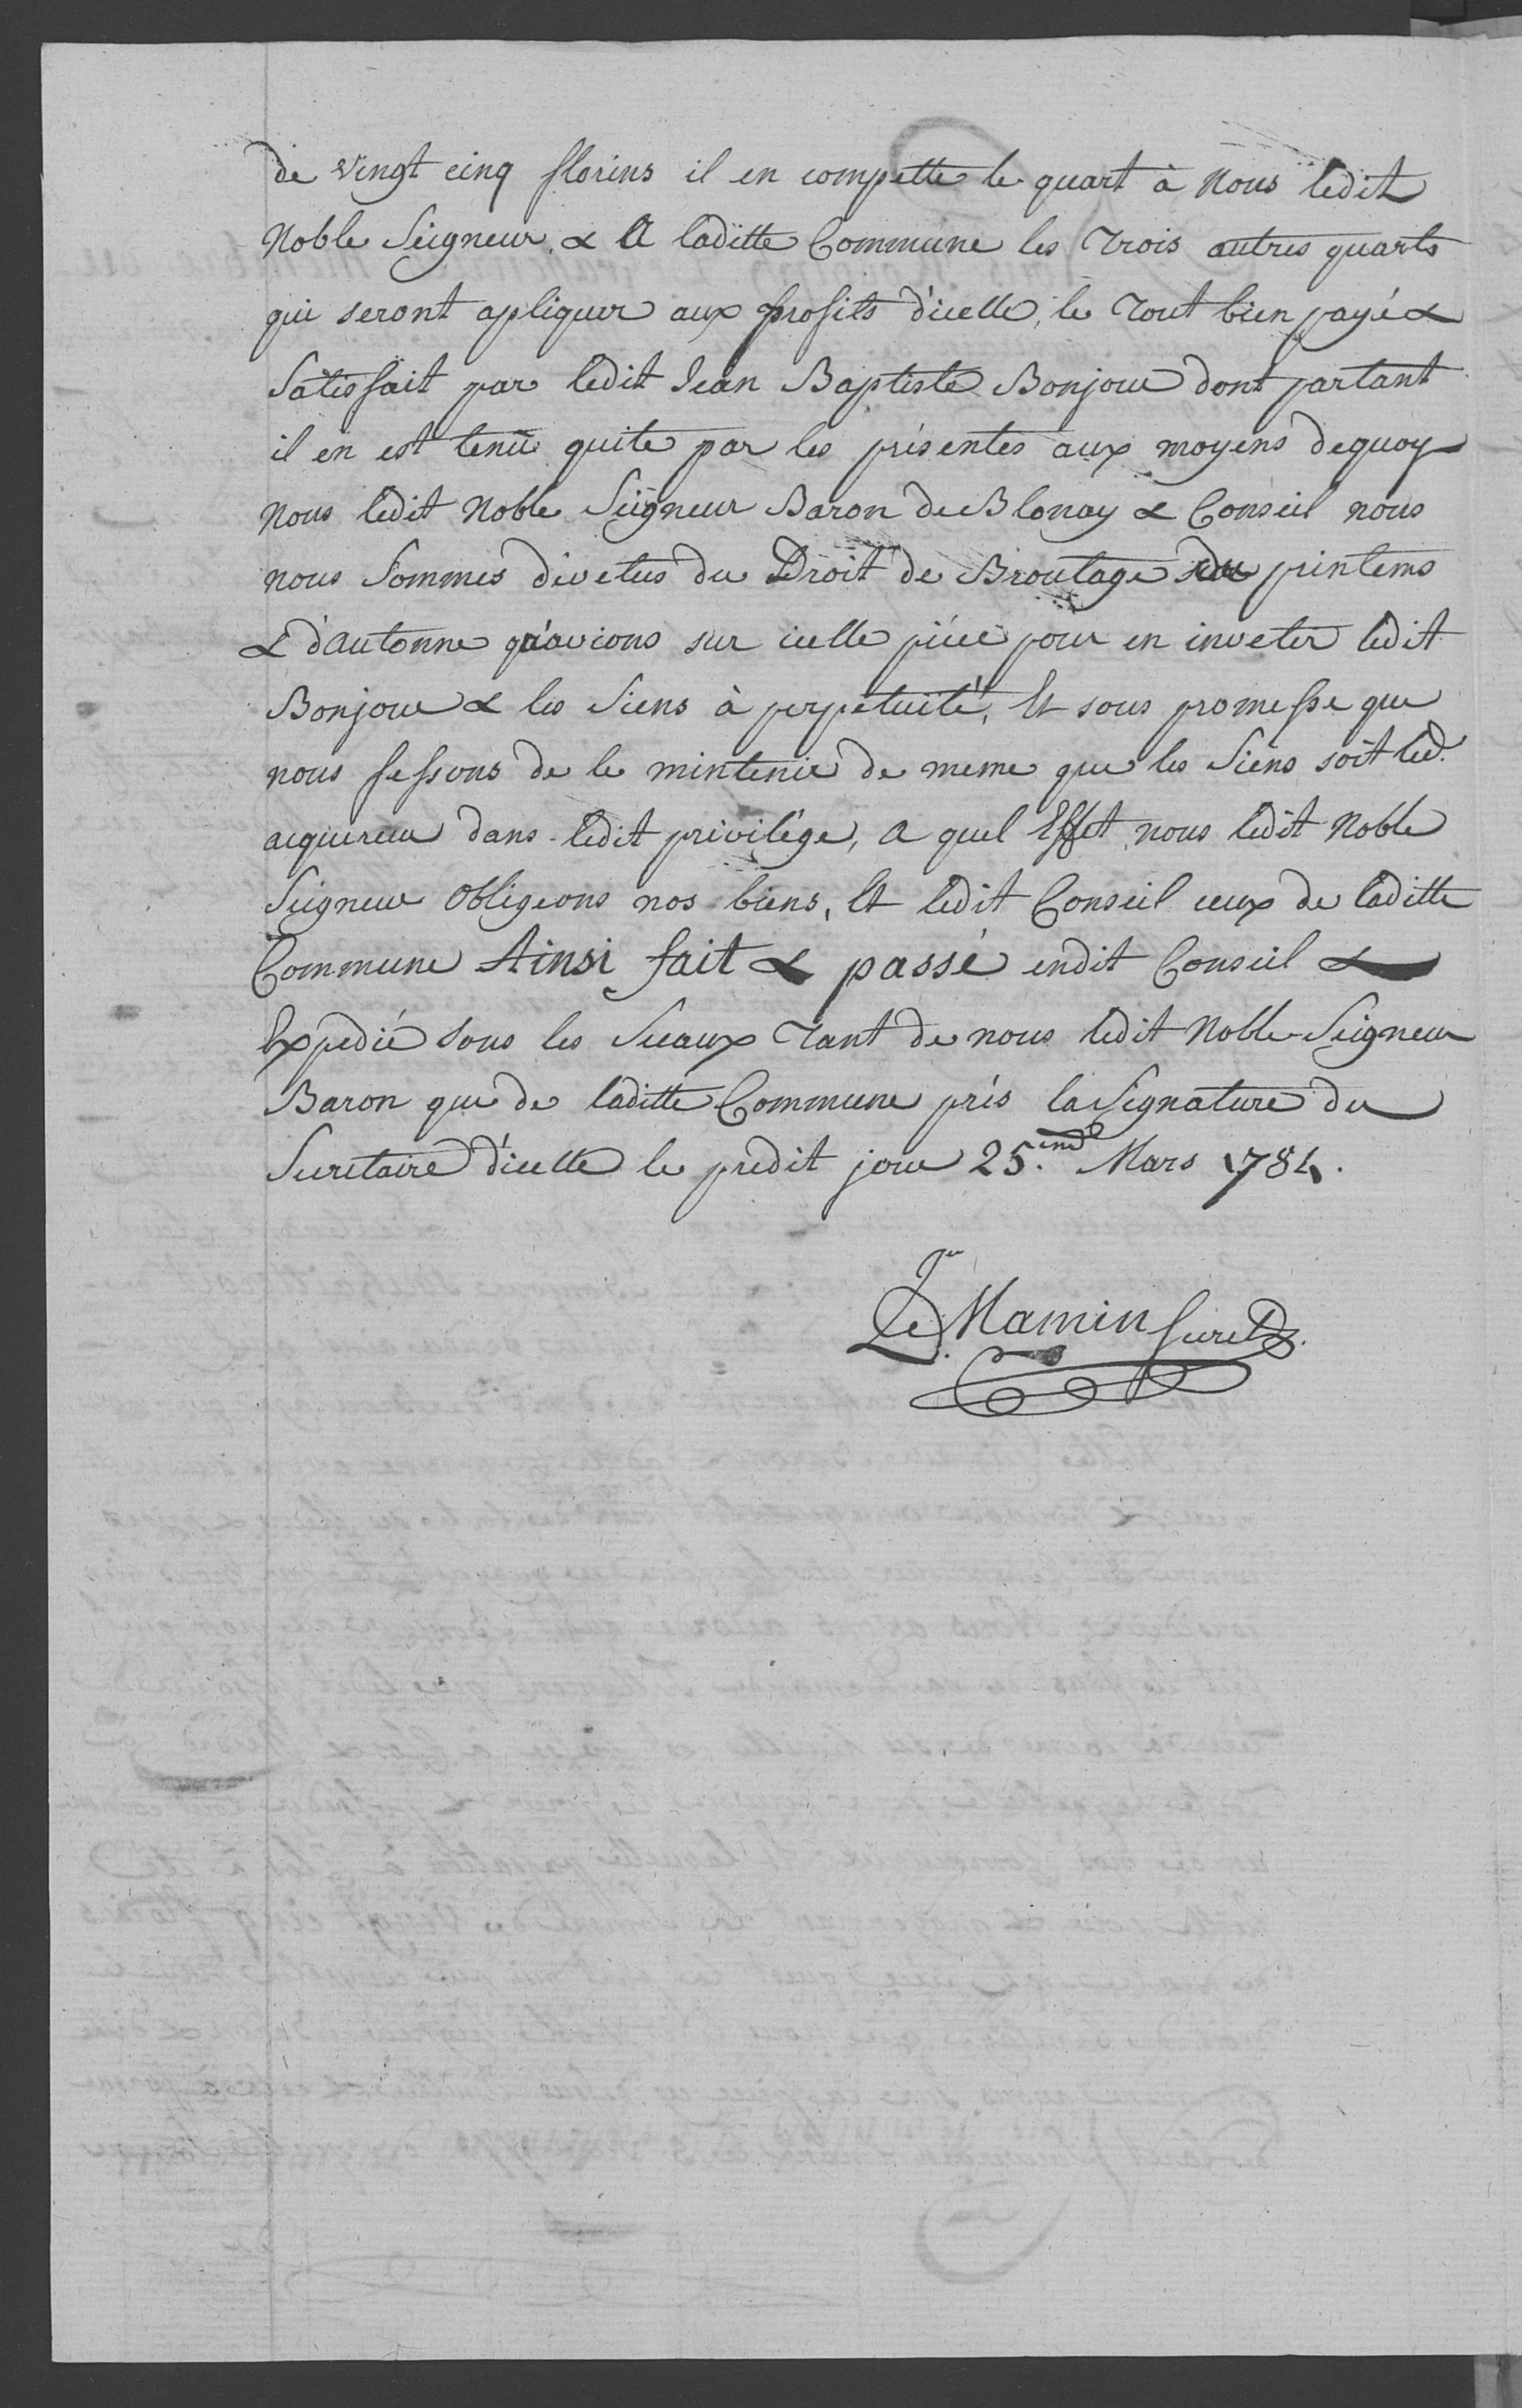 de vingt cinq florins il en compette le quart à Nous ledit
Noble Seigneur, & A laditte Commune les Trois autres quarts
qui seront apliquer aux profits d'icelle, le Tout bien payé &
Satisfait par ledit Jean Baptiste Bonjour dont partant
il en est tenû quite par les présentes aux moyens dequoy
Nous ledit Noble Seigneur Baron de Blonay & Conseil nous
nous Sommes divetus du Droit de Broutage du printems
& d'autonne qu'avions sur icelle piéce pour en inveter ledit
Bonjour & les Siens à perpétuité, Et sous promesse que
nous fessons de le mintenir de meme que les Siens soit led.
acquereur dans ledit privilége, a quel Effet nous ledit Noble
Seigneur Obligeons nos biens, Et ledit Conseil ceux de laditte
Commune Ainsi fait & passé endit Conseil &
Expedié sous les Sceaux Tant de nous ledit Noble Seigneur
Baron que de laditte Commune prés la Signature du
Secretaire d'icelle le prédit jour 25. Mars 1784.
Mamin Secret.